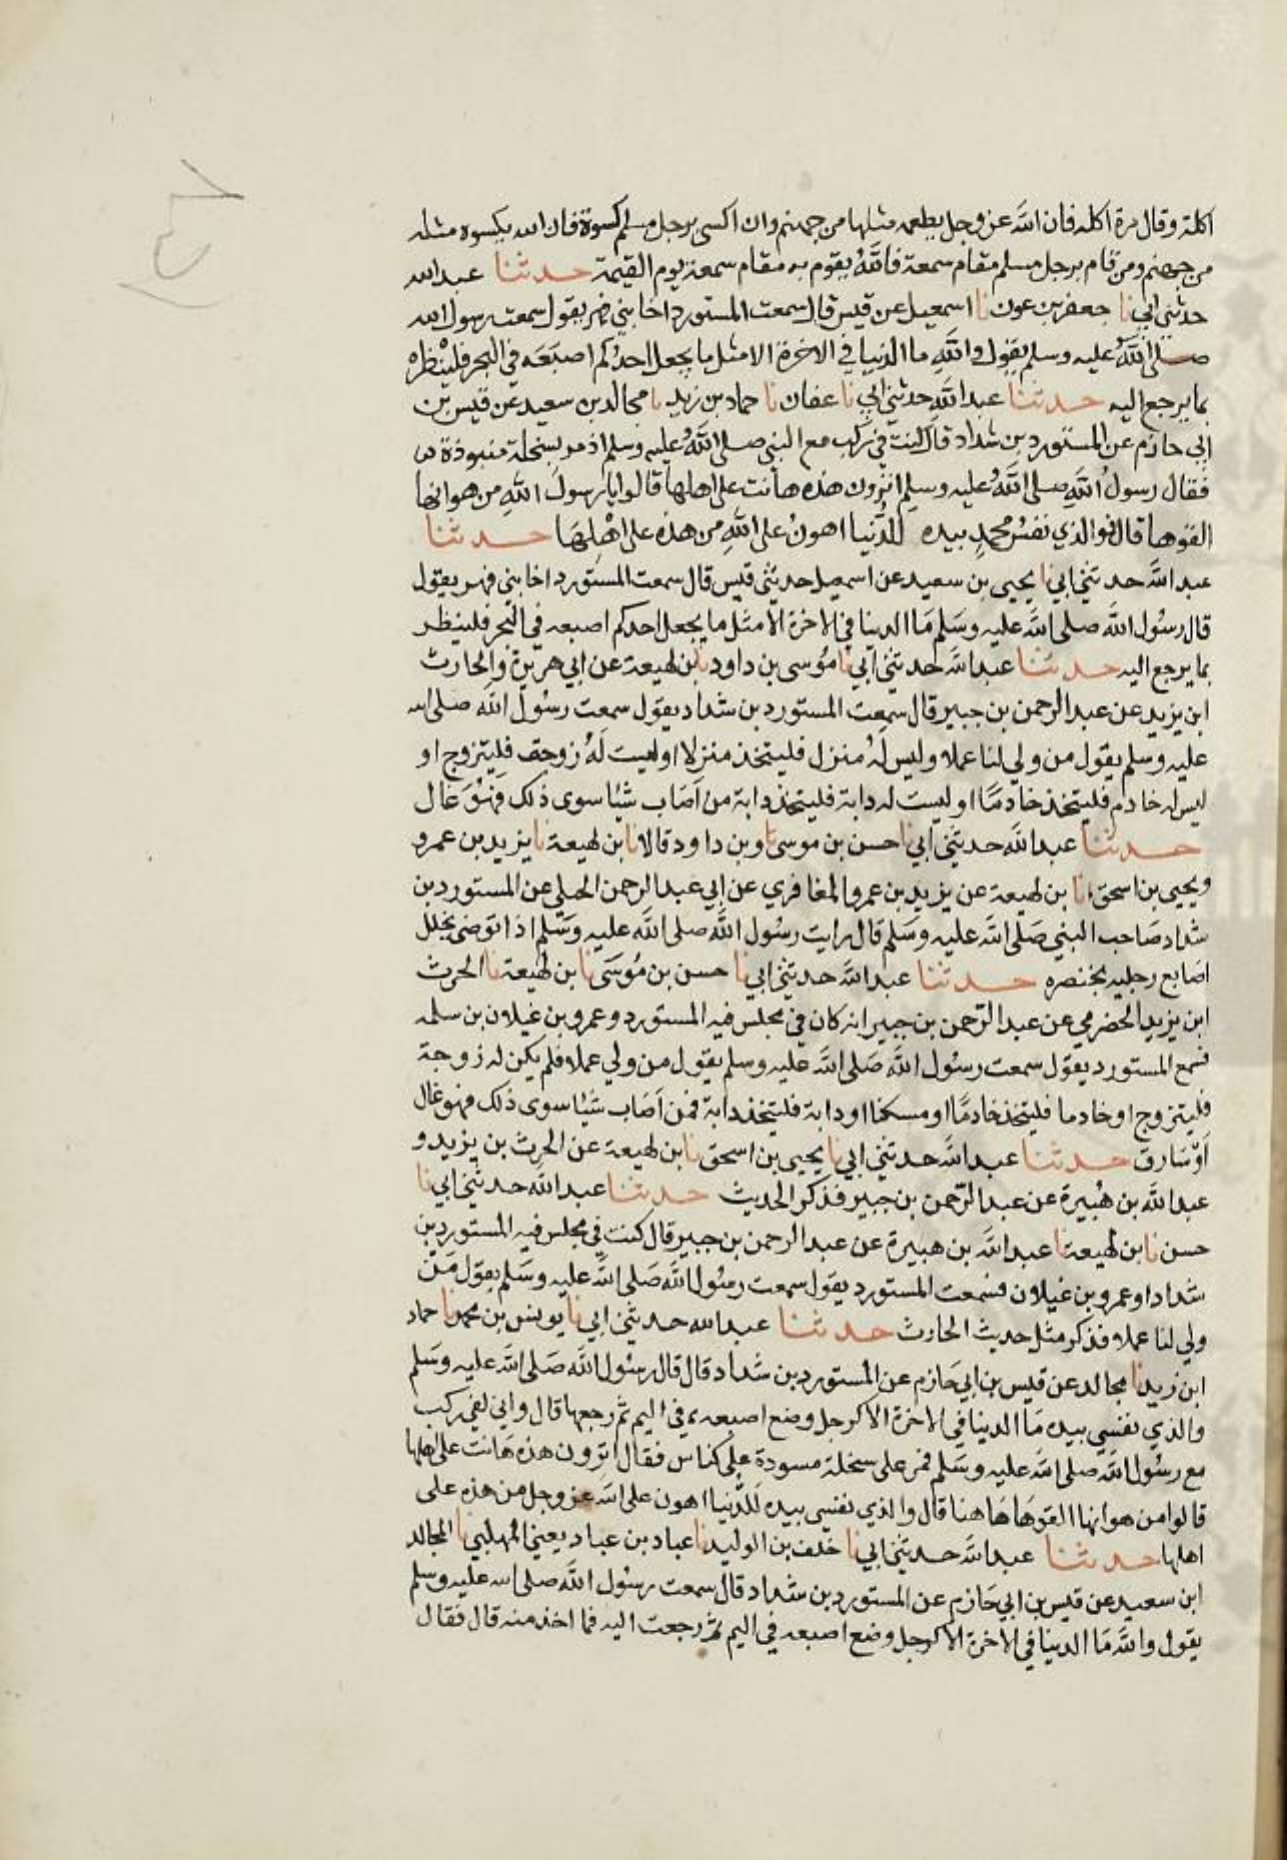 اكلة وقال مرة اكله فان الله عز وجل يطعمه مثلها من جهنم وان اكسى برجل مسلم كسوة فان الله يكسوه مثله
من جهنم ومن قام برجل مسلم مقام سمعة فالله يقوم به مقام سمعة يوم القيمة حدثنا عبد الله
حدثني ابي نا جعفر بن عون نا اسمعيل عن قيس قال سمعت المستورد اخا بني فهر يقول سمعت رسول الله
صلى الله عليه وسلم يقول والله ما الدنيا في الاخرة الا مثل ما يجعل احدكم اصبعه في البحر فلينظر
بما يرجع اليه حدثنا عبد الله حدثني ابي نا عفان نا حماد بن زيد نا مجالد بن سعيد عن قيس بن
ابي حازم عن المستورد بن شداد قال كنت في ركب مع النبي صلى الله عليه وسلم اذ مر بسخلة منبوذة
فقال رسول الله صلى الله عليه وسلم اترون هذه هانت على اهلها قالوا يا رسول الله من هوانها
القوها قال فوالذي نفس محمد بيده للدنيا اهون على الله من هذه على اهلها حدثنا
عبد الله حدثني ابي نا يحيى بن سعيد عن اسمعيل حدثني قيس قال سمعت المستورد اخا بني فهر يقول
قال رسول الله صلى الله عليه وسلم ما الدنيا في الاخرة الا مثل ما يجعل احدكم اصبعه في البحر فلينظر
بما يرجع اليه حدثنا عبد الله حدثني ابي نا موسى بن داود نا بن لهيعة عن ابي هريرة والحارث
ابن يزيد عن عبد الرحمن بن جبير قال سمعت المستورد بن شداد يقول سمعت رسول الله صلى الله
عليه وسلم يقول من ولي لنا عملا وليس له منزل فليتخذ منزلا او ليست له زوجة فليتزوج او
ليس له خادم فليتخذ خادما او ليست له دابة فليتخذ دابة من اصاب شيئا سوى ذلك فهو غال
حدثنا عبد الله حدثني ابي نا حسن بن موسى نا وبن داود قالا نا بن لهيعة نا يزيد بن عمرو
ويحيى بن اسحق انا بن لهيعة عن يزيد بن عمرو المغافري عن ابي عبد الرحمن الحبلي عن المستورد بن
شداد صاحب النبي صلى الله عليه وسلم قال رايت رسول الله صلى الله عليه وسلم اذا توضى يخلل
اصابع رجليه بخنصره حدثنا عبد الله حدثني ابي نا حسن بن موسى نا بن لهيعة نا الحرث
ابن يزيد الحضرمي عن عبد الرحمن بن جبير انه كان في مجلس فيه المستورد وعمرو بن غيلان بن سلمه
فسمع المستورد يقول سمعت رسول الله صلى الله عليه وسلم يقول من ولي عملا فلم يكن له زوجة
فليتزوج او خادما فليتخذ خادما او مسكنا او دابة فليتخذ دابة فمن اصاب شيئا سوى ذلك فهو غال
او سارق حدثنا عبد الله حدثني ابي نا يحيى بن اسحق نا بن لهيعة عن الحرث بن يزيد و
عبد الله بن هبيرة عن عبد الرحمن بن جبير فذكر الحديث حدثنا عبد الله حدثني ابي نا
حسن نا بن لهيعة نا عبد الله بن هبيرة عن عبد الرحمن بن جبير قال كنت في مجلس فيه المستورد بن
شداد وعمرو بن غيلان فسمعت المستورد يقول سمعت رسول الله صلى الله عليه وسلم يقول من
ولي لنا عملا فذكر مثل حديث الحارث حدثنا عبد الله حدثني ابي نا يونس بن محمد نا حماد
ابن زيد نا مجالد عن قيس بن ابي حازم عن المستورد بن شداد قال قال رسول الله صلى الله عليه وسلم
والذي نفسي بيده ما الدنيا في الاخرة الا كرجل وضع اصبعه في اليم ثم رجعها قال واني لفي ركب
مع رسول الله صلى الله عليه وسلم فمر على سخلة مسودة على كناس فقال اترون هذه هانت على اهلها
قالوا من هوانها القوها هاهنا قال والذي نفسي بيده للدنيا اهون على الله عز وجل من هذه على
اهلها حدثنا عبد الله حدثني ابي نا خلف بن الوليد نا عباد بن عباد يعني المهلبي نا المجالد
ابن سعيد عن قيس بن ابي حازم عن المستورد بن شداد قال سمعت رسول الله صلى الله عليه وسلم
يقول والله ما الدنيا في الاخرة الا كرجل وضع اصبعه في اليم ثم رجعت اليه فما اخذ منه قال فقال